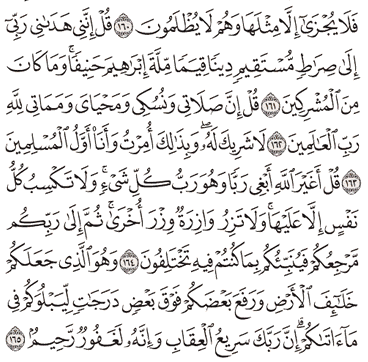 فَلَا يُجْزَىٰٓ إِلَّا مِثْلَهَا وَهُمْ لَا يُظْلَمُونَ ١٦٠ قُلْ إِنَّنِى هَدَىٰنِى رَبِّىٓ
إِلَىٰ صِرَٰطٍ مُّسْتَقِيمٍ دِينًا قِيَمًا مِّلَّةَ إِبْرَٰهِيمَ حَنِيفًا ۚ وَمَا كَانَ
مِنَ ٱلْمُشْرِكِينَ ١٦١ قُلْ إِنَّ صَلَاتِى وَنُسُكِى وَمَحْيَاىَ وَمَمَاتِى لِلَّهِ
رَبِّ ٱلْعَٰلَمِينَ ١٦٢ لَا شَرِيكَ لَهُۥ ۖ وَبِذَٰلِكَ أُمِرْتُ وَأَنَا۠ أَوَّلُ ٱلْمُسْلِمِينَ
١٦٣ قُلْ أَغَيْرَ ٱللَّهِ أَبْغِى رَبًّا وَهُوَ رَبُّ كُلِّ شَىْءٍ ۚ وَلَا تَكْسِبُ كُلُّ
نَفْسٍ إِلَّا عَلَيْهَا ۚ وَلَا تَزِرُ وَازِرَةٌ وِزْرَ أُخْرَىٰ ۚ ثُمَّ إِلَىٰ رَبِّكُم
مَّرْجِعُكُمْ فَيُنَبِّئُكُم بِمَا كُنتُمْ فِيهِ تَخْتَلِفُونَ ١٦٤ وَهُوَ ٱلَّذِى جَعَلَكُمْ
خَلَٰٓئِفَ ٱلْأَرْضِ وَرَفَعَ بَعْضَكُمْ فَوْقَ بَعْضٍ دَرَجَٰتٍ لِّيَبْلُوَكُمْ فِى
مَآ ءَاتَىٰكُمْ ۗ إِنَّ رَبَّكَ سَرِيعُ ٱلْعِقَابِ وَإِنَّهُۥ لَغَفُورٌ رَّحِيمٌۢ ١٦٥